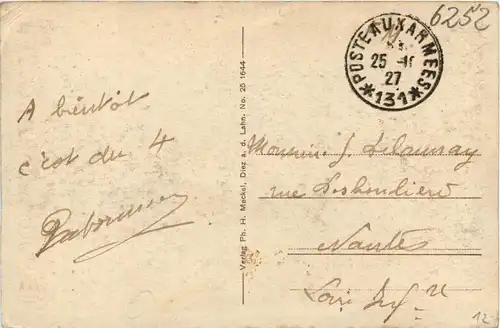 6252
* POSTE AUX ARMEES *
25
27
131
A bientôt
c'est du 4
Verlag Ph. H. Meckel, Diez a. d. Lahn. No. 25 1644
Monsieur J Delaunay
rue
Nantes
Loire Inf re
12